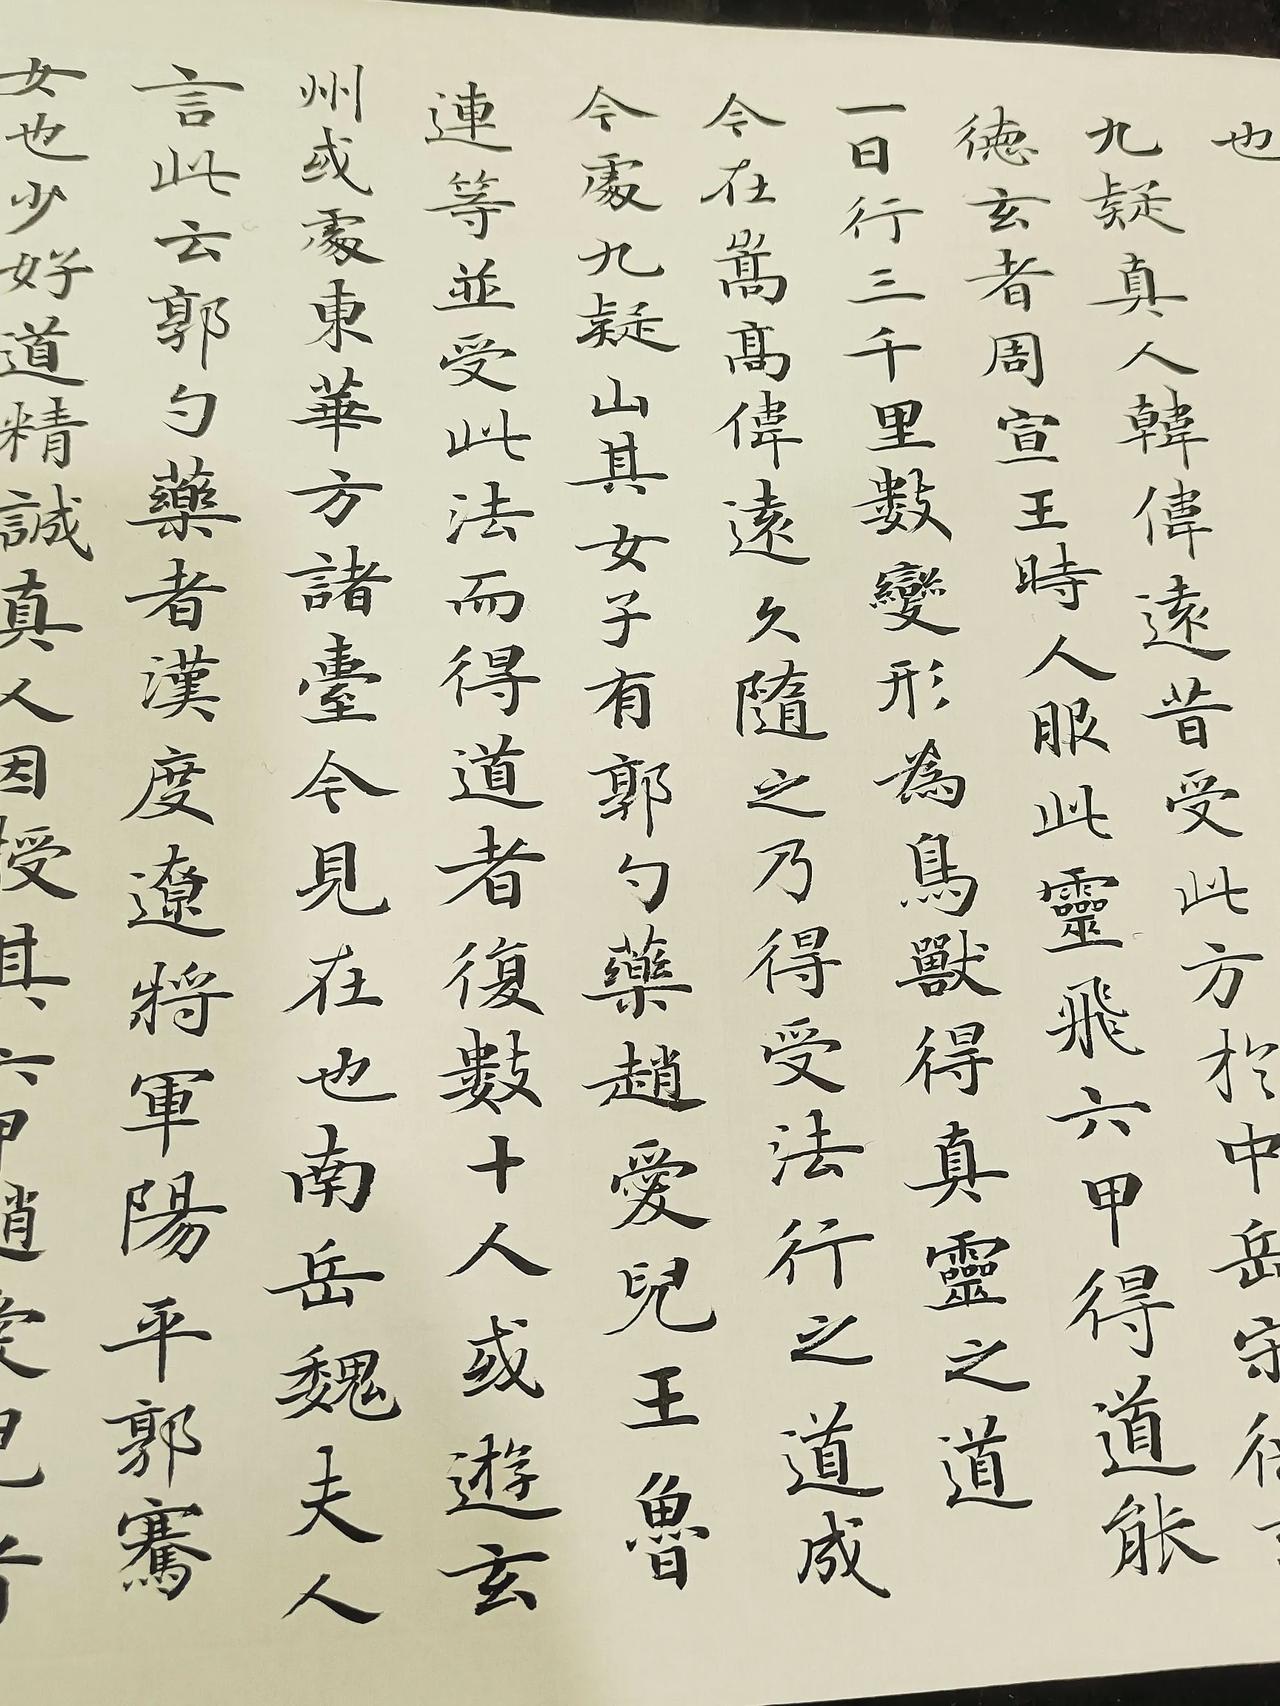 也
九疑真人韓偉遠昔受此方於中岳宋
德玄者周宣王時人服此靈飛六甲得道能
一日行三千里數變形為鳥獸得真靈之道
今在嵩高偉遠久隨之乃得受法行之道成
今處九疑山其女子有郭勺藥趙愛兒王魯
連等並受此法而得道者復數十人或遊玄
州或處東華方諸臺今見在也南岳魏夫人
言此云郭勺藥者漢度遼將軍陽平郭騫
女也少好道精誠真人因授其六甲趙愛兒者